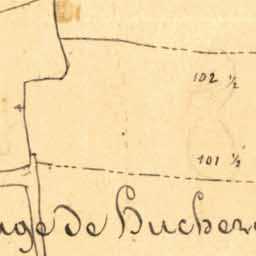 102 ½
101 ½
age de Hucher